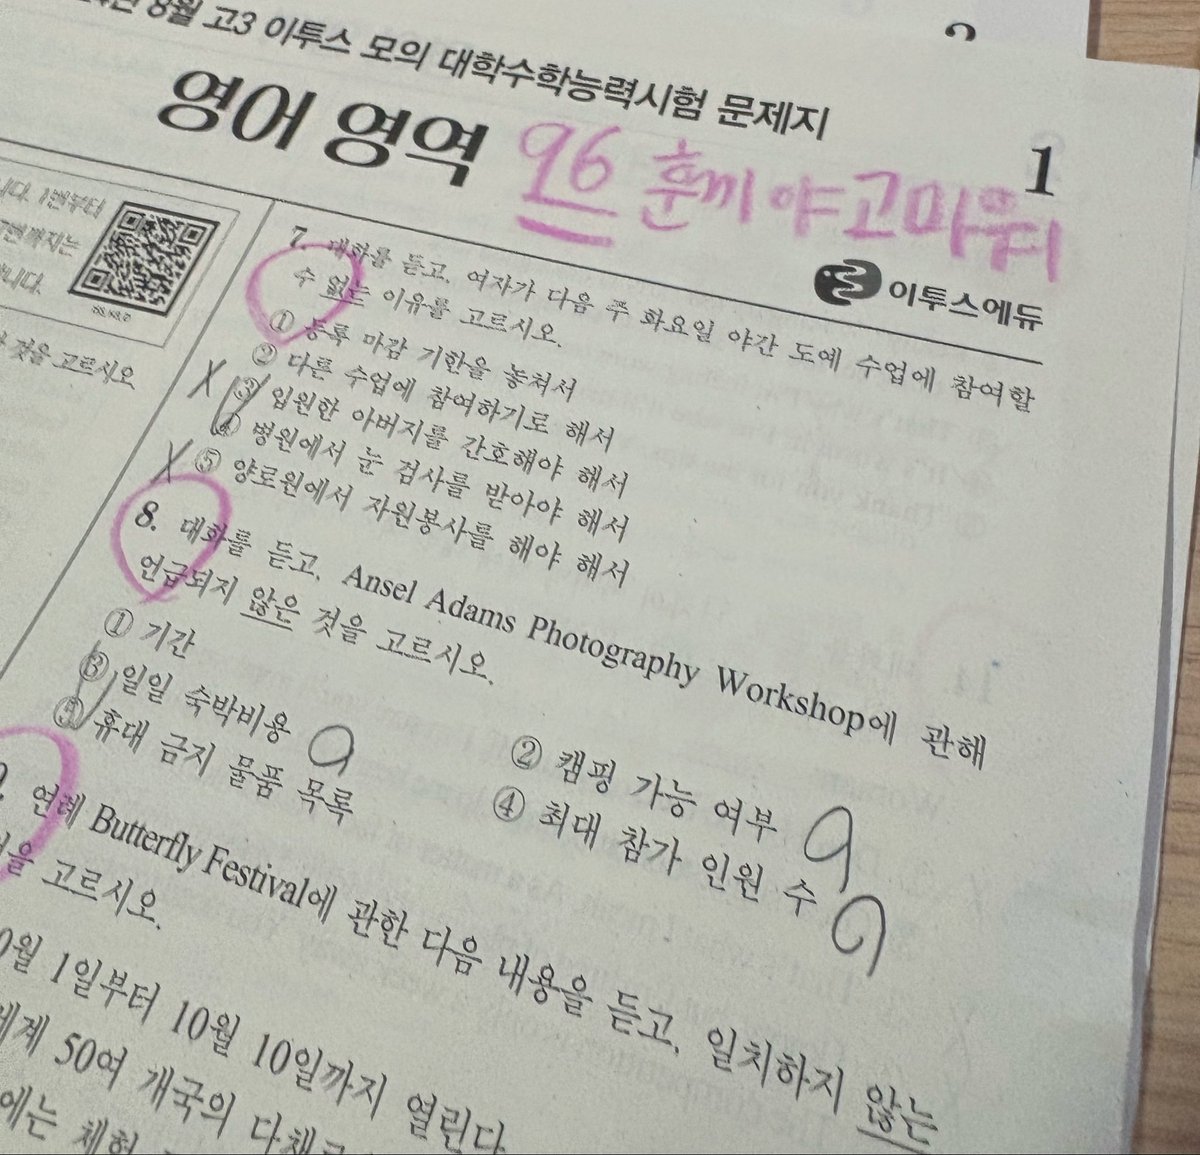 8월 고3 이투스 모의 대학수학능력시험 문제지
영어 영역
96 훈끼야 고마워
1
이투스에듀
1번부터
것을 고르시오
7. 대화를 듣고, 여자가 다음 주 화요일 야간 도예 수업에 참여할
수 없는 이유를 고르시오.
① 등록 마감 기한을 놓쳐서
② 다른 수업에 참여하기로 해서
③ 입원한 아버지를 간호해야 해서
④ 병원에서 눈 검사를 받아야 해서
⑤ 양로원에서 자원봉사를 해야 해서
8. 대화를 듣고, Ansel Adams Photography Workshop에 관해
언급되지 않은 것을 고르시오.
① 기간
② 캠핑 가능 여부
③ 일일 숙박비용
④ 최대 참가 인원 수
⑤ 휴대 금지 물품 목록
연례 Butterfly Festival에 관한 다음 내용을 듣고, 일치하지 않는
고르시오.
1일부터 10월 10일까지 열린다
50여 개국의